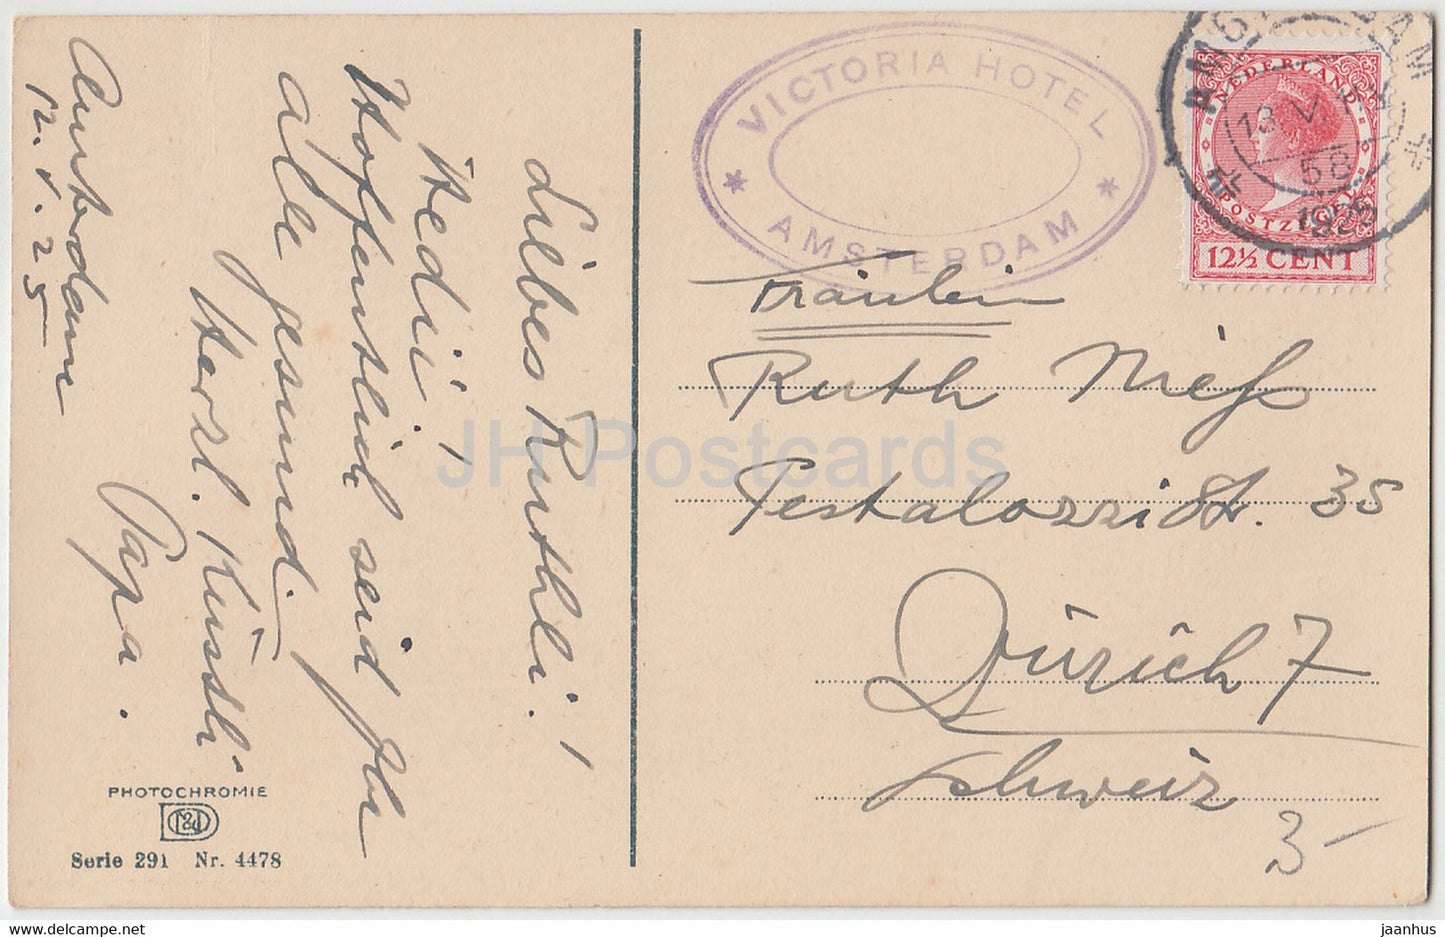 Amsterdam
12. V. 25
Liebes Ruthli!
Hedi!
Hoffentlich seid Ihr
alle gesund.
Herzl. Küssli
Papa.
PHOTOCHROMIE
Serie 291 Nr. 4478
VICTORIA HOTEL
AMSTERDAM
NEDERLAND
POSTZEGEL
12½ CENT
AMSTERDAM
13.V.
58
1925
Fräulein
Ruth Mieß
Pestalozzi St. 35
Zürich 7
Schweiz
3-
JH Postcards
www.delcampe.net
jaanhus